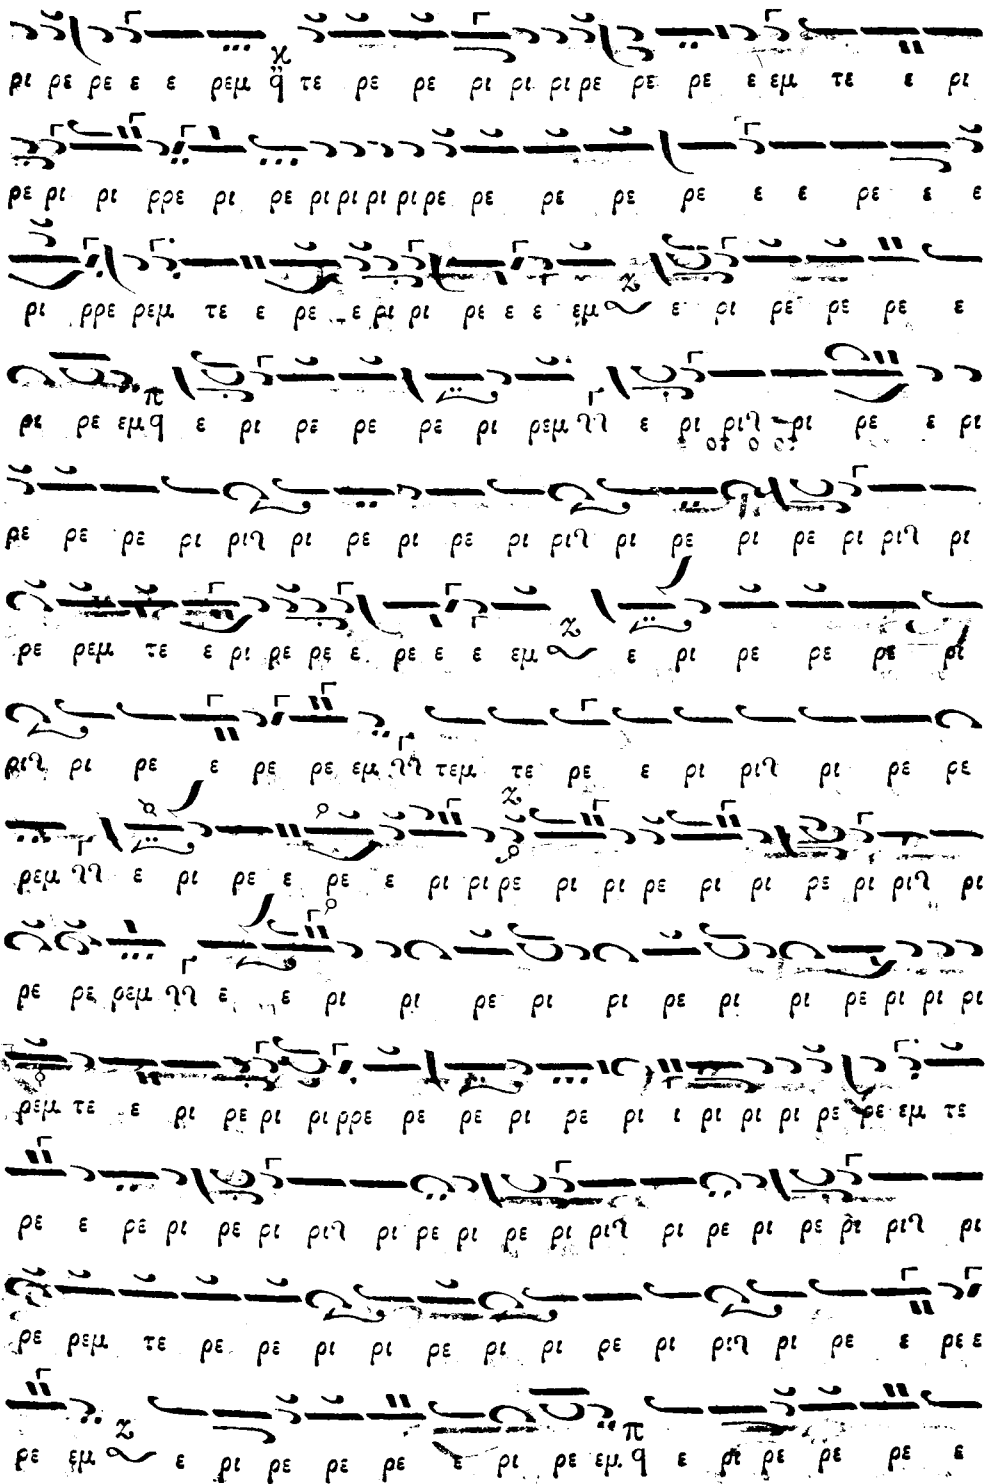 ρι ρε ρε ε ε ρεμ τε ρε ρε ρι ρι ρι ρε ρε ρε ε εμ τε ε ρι
ρε ρι ρι ρρε ρι ρε ρι ρι ρι ρι ρε ρε ρε ρε ρε ε ε ρε ε ε
ρι ρρε ρεμ τε ε ρε ε ρι ρι ρε ε ε εμ ε ρι ρε ρε ρε ε
ρι ρε εμ ε ρι ρε ρε ρε ρι ρεμ ε ρι ρι ρι ρε ε ρι
ρε ρε ρε ρι ρι ρι ρε ρι ρε ρι ρι ρι ρε ρι ρε ρι ρι ρι
ρε ρεμ τε ε ρι ρε ρε ε ρε ε ε εμ ε ρι ρε ρε ρε ρι
ρι ρι ρε ε ρε ρε εμ τεμ τε ρε ε ρι ρι ρι ρε ρε
ρεμ ε ρι ρε ε ρε ε ρι ρι ρε ρι ρι ρε ρι ρι ρε ρι ρι ρι
ρε ρε ρεμ ε ε ρι ρι ρε ρι ρι ρε ρι ρι ρε ρι ρι ρι
ρεμ τε ε ρι ρε ρι ρι ρρε ρε ρε ρι ρε ρι ι ρι ρι ρι ρε ρε εμ τε
ρε ε ρε ρι ρε ρι ρι ρι ρε ρι ρε ρι ρι ρι ρε ρι ρε ρι ρι ρι
ρε ρεμ τε ρε ρε ρι ρι ρε ρι ρι ρε ρι ρι ρι ρε ε ρε ε
ρε εμ ε ρι ρε ρε ρε ε ρι ρε εμ ε ρι ρε ρε ρε ε